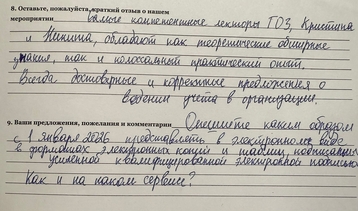 8. Оставьте, пожалуйста, краткий отзыв о нашем
мероприятии Самые компетентные лекторы ТОЗ, Кристина
и Никита, обладают как теоретические обширные
знания, так и колоссальный практический опыт.
Всегда достоверные и корректные предложения о
ведении учета в организации.
9. Ваши предложения, пожелания и комментарии Опишите каким образом
с 1 января 2026 представлять в электронном виде
в форматах электронных копий и таблиц, подписанных
усиленной квалифицированной электронной подписью
Как и на каком сервисе?